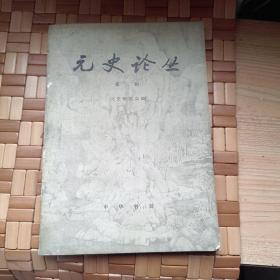 元史论丛
元史研究会编
中华书局